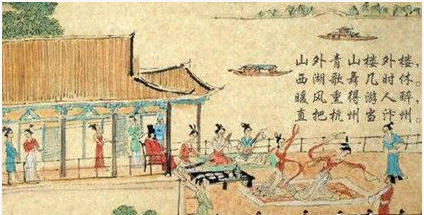 山外青山楼外楼，
西湖歌舞几时休，
暖风熏得游人醉，
直把杭州当汴州。